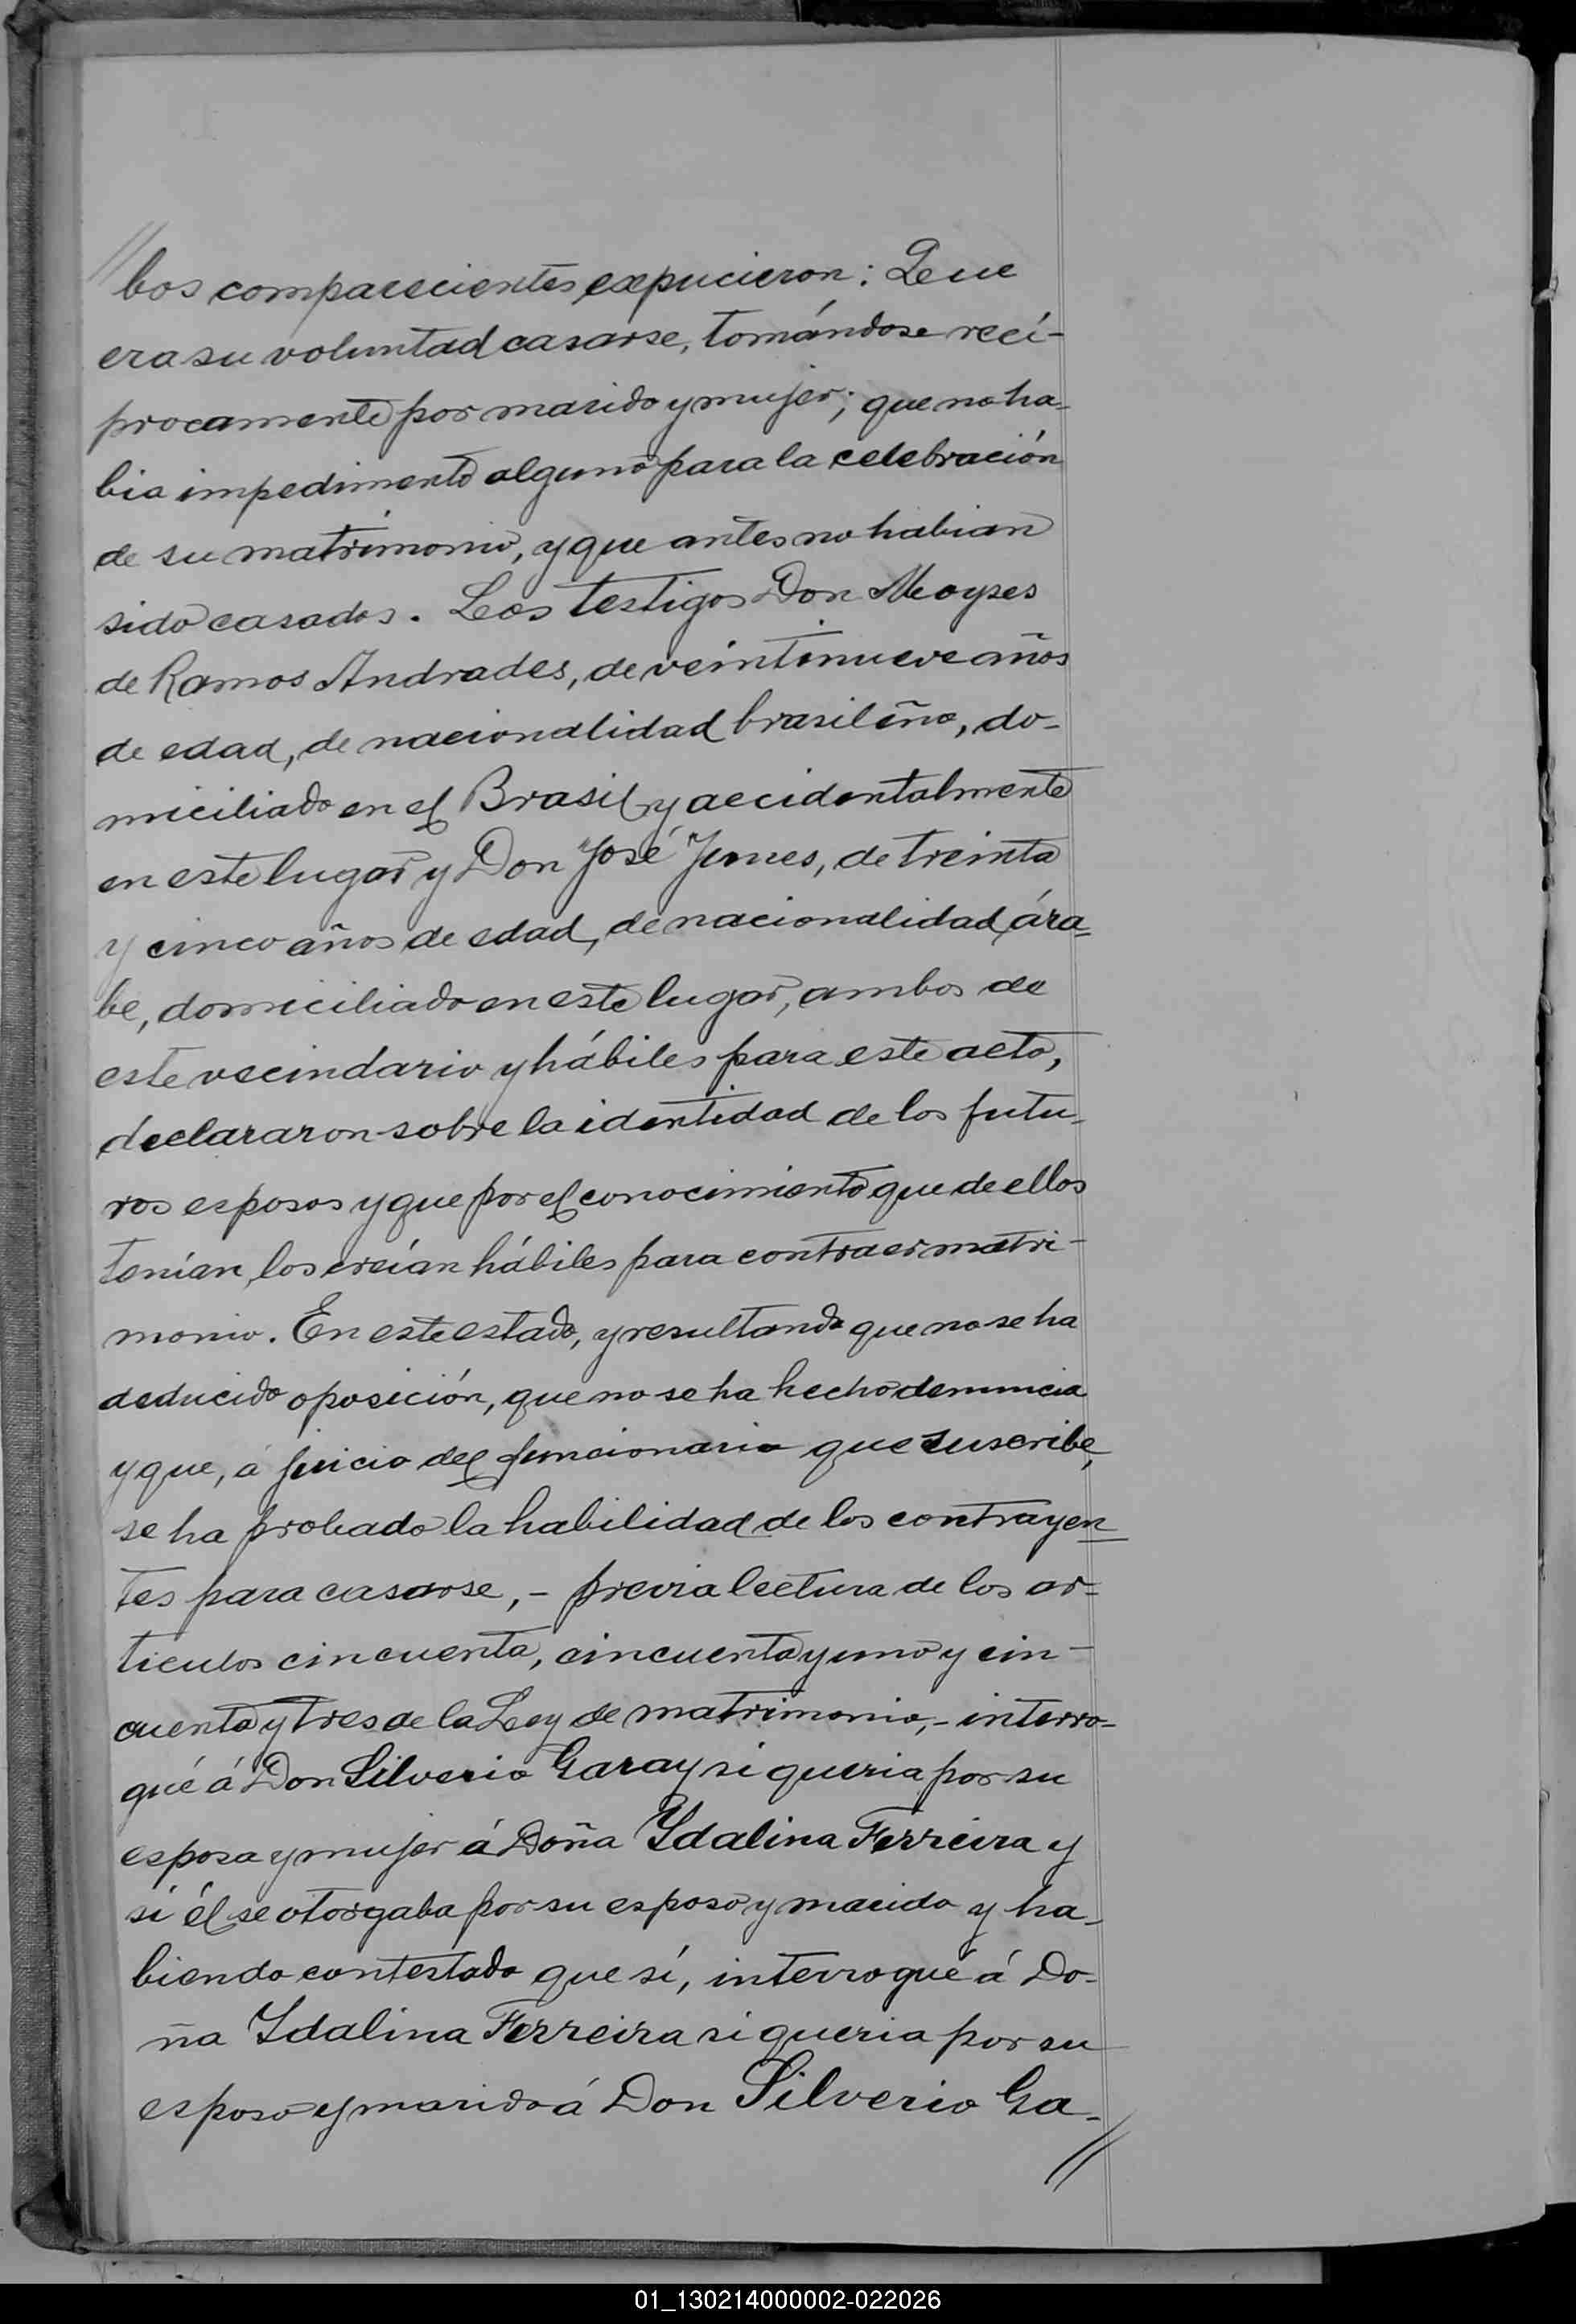 // bos comparecientes expucieron: Que
era su voluntad casarse, tomándose recí-
procamente por marido y mujer; que no ha-
bia impedimento alguno para la celebración
de su matrimonio, y que antes no habian
sido casados. Los testigos Don Moyses
de Ramos Andrades, de veintinueve años
de edad, de nacionalidad brasileña, do-
miciliado en el Brasil y accidentalmente
en este lugar y Don José Junes, de treinta
y cinco años de edad, de nacionalidad ára-
be, domiciliado en este lugar, ambos de
este vecindario y hábiles para este acto,
declararon sobre la identidad de los futu-
ros esposos y que por el conocimiento que de ellos
tenían, los creían hábiles para contraer matri-
monio. En este estado, y resultando que no se ha
deducido oposición, que no se ha hecho denuncia
y que, á juicio del funcionario que suscribe,
se ha probado la habilidad de los contrayen-
tes para casarse,- previa lectura de los ar-
ticulos cincuenta, cincuenta y uno y cin-
cuenta y tres de la Ley de matrimonio,- interro-
gué á Don Silverio Garay si queria por su
esposa y mujer á Doña Ydalina Ferreira y
si él se otorgaba por su esposo y marido y ha-
biendo contestado que sí, interrogué á Do-
ña Ydalina Ferreira si queria por su
esposo y marido á Don Silverio Ga-
//
01_130214000002-022026